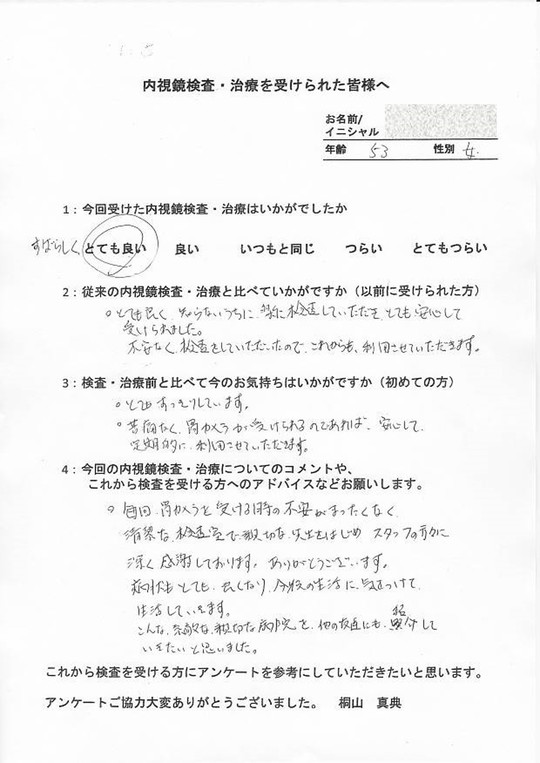 内視鏡検査・治療を受けられた皆様へ
お名前/
イニシャル
年齢 53 性別 女.
1：今回受けた内視鏡検査・治療はいかがでしたか
すばらしく とても良い 良い いつもと同じ つらい とてもつらい
2：従来の内視鏡検査・治療と比べていかがですか（以前に受けられた方）
○とても良く、知らないうちに、楽に検査していただき、とても安心して
受けられました。
不安なく、検査をしていただいたので、これからも、利用させていただきます。
3：検査・治療前と比べて今のお気持ちはいかがですか（初めての方）
○とてもすっきりしています。
○苦痛なく、胃カメラが受けられるのであれば、安心して、
定期的に、利用させていただきます。
4：今回の内視鏡検査・治療についてのコメントや、
これから検査を受ける方へのアドバイスなどお願いします。
○毎回、胃カメラを受ける時の不安がまったくなく、
清潔な、検査室で、親切な、先生をはじめ スタッフの方々に
深く感謝しております。ありがとうございます。
病状もとても、良くなり、今後の生活に、気をつけて、
生活していきます。
こんな、素敵な、親切な病院を、他の友達にも、紹介して
いきたいと思いました。
これから検査を受ける方にアンケートを参考にしていただきたいと思います。
アンケートご協力大変ありがとうございました。 桐山 真典